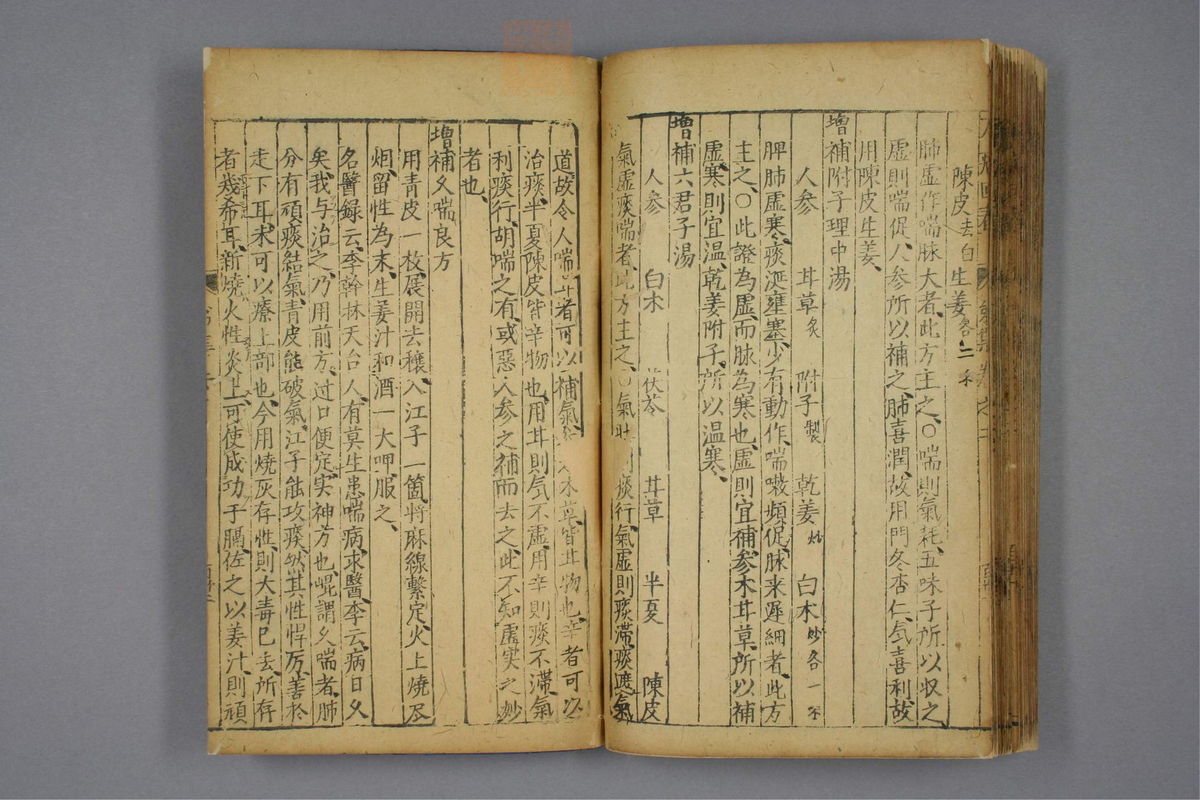 陳皮去白 生姜各二
肺虛作喘脉大者此方主之○喘則氣耗五味子所以収之
虛則喘促人參所以補之肺喜潤故用門冬杏仁气喜利故
用陳皮生姜
增補附子理中湯
人參 甘草炙 附子製 乾姜炒 白术炒各一
脾肺虛寒痰涎壅塞少有動作喘嗽頻促脉来遲細者此方
主之○此證為虛而脉為寒也虛則宜補參术甘草所以補
虛寒則宜温乾姜附子所以温寒
增補六君子湯
人參 白术 茯苓 甘草 半夏 陳皮
氣虛痰喘者此方主之○氣 痰行氣虛則痰滯痰遮氣
道故令人喘甘者可以補氣 术草皆甘物也辛者可以
治痰半夏陳皮皆辛物也用甘則气不虛用辛則痰不滯氣
利痰行胡喘之有或惡人參之補而去之此不知虛实之妙
者也
增補久喘良方
用青皮一枚展開去穰入江子一箇將麻線繫定火上燒尽
烟留性為末生姜汁和酒一大呷服之
名醫錄云李翰林天台人有莫生患喘病求醫李云病日久
矣我与治之乃用前方过口便定实神方也崐謂久喘者肺
分有頑痰結氣青皮能破氣江子能攻痰然其性悍厉善於
走下耳未可以療上部也今用燒灰存性則大毒已去所存
者幾希耳新燒火性炎上可使成功于膈佐之以姜汁則頑